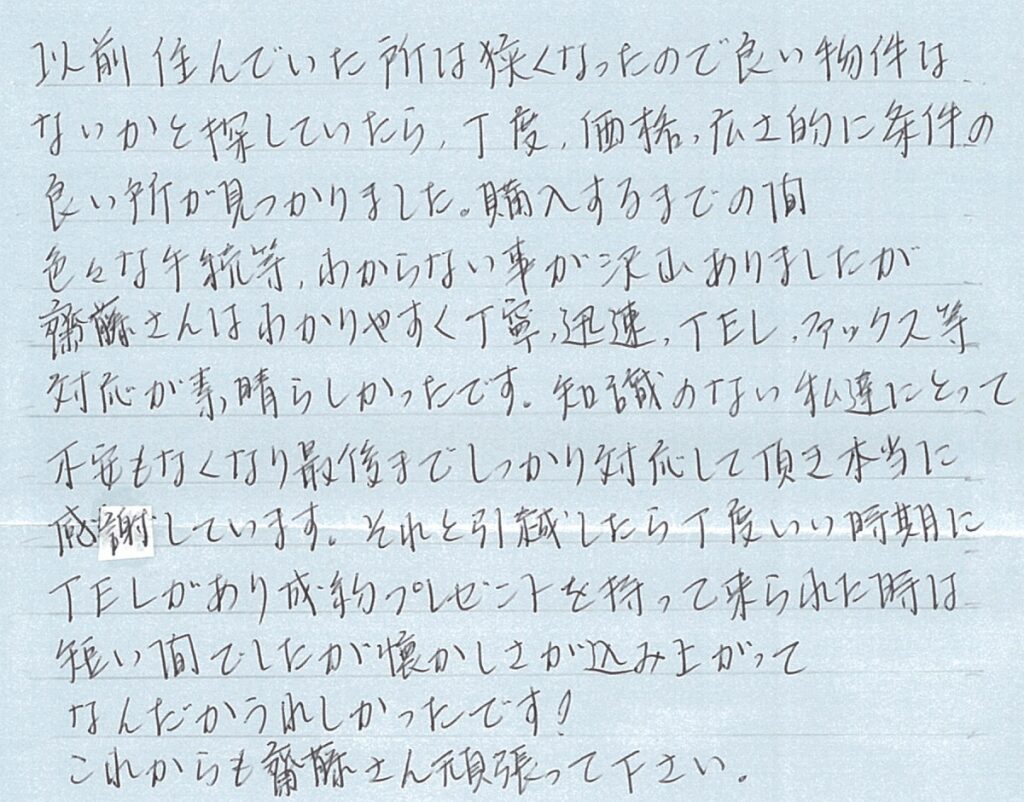 以前住んでいた所は狭くなったので良い物件は
ないかと探していたら、丁度、価格、広さ的に条件の
良い所が見つかりました。購入するまでの間
色々な手続等、わからない事が沢山ありましたが
齋藤さんはわかりやすく丁寧、迅速、TEL、ファックス等
対応が素晴らしかったです。知識のない私達にとって
不安もなくなり最後までしっかり対応して頂き本当に
感謝しています。それと引越したら丁度いい時期に
TELがあり成約プレゼントを持って来られた時は
短い間でしたが懐かしさが込み上がって
なんだかうれしかったです!
これからも齋藤さん頑張って下さい。